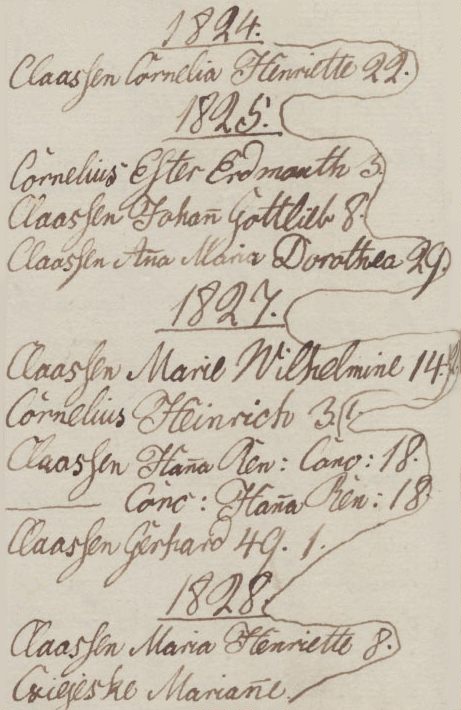 1824.
Claassen Cornelia Henriette 22.
1825.
Cornelius Ester Erdmouth 3.
Claassen Johan̄ Gottlieb 8.
Claassen An̄a Maria Dorothea 29.
1827.
Claassen Marie Wilhelmine 14.
Cornelius Heinrich 3.
Claassen Han̄a Ren: Caro: 18.
Caro: Han̄a Ren: 18.
Claassen Gerhard 49. 1.
1828.
Claassen Maria Henriette 8.
Marian̄e.